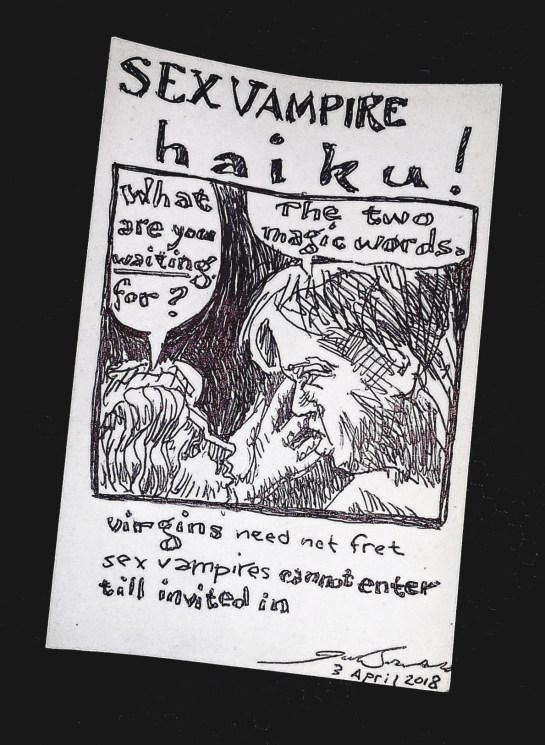 SEX VAMPIRE
haiku!
What
are you
waiting
for?
The two
magic words.
virgins need not fret
sex vampires cannot enter
till invited in
3 April 2018